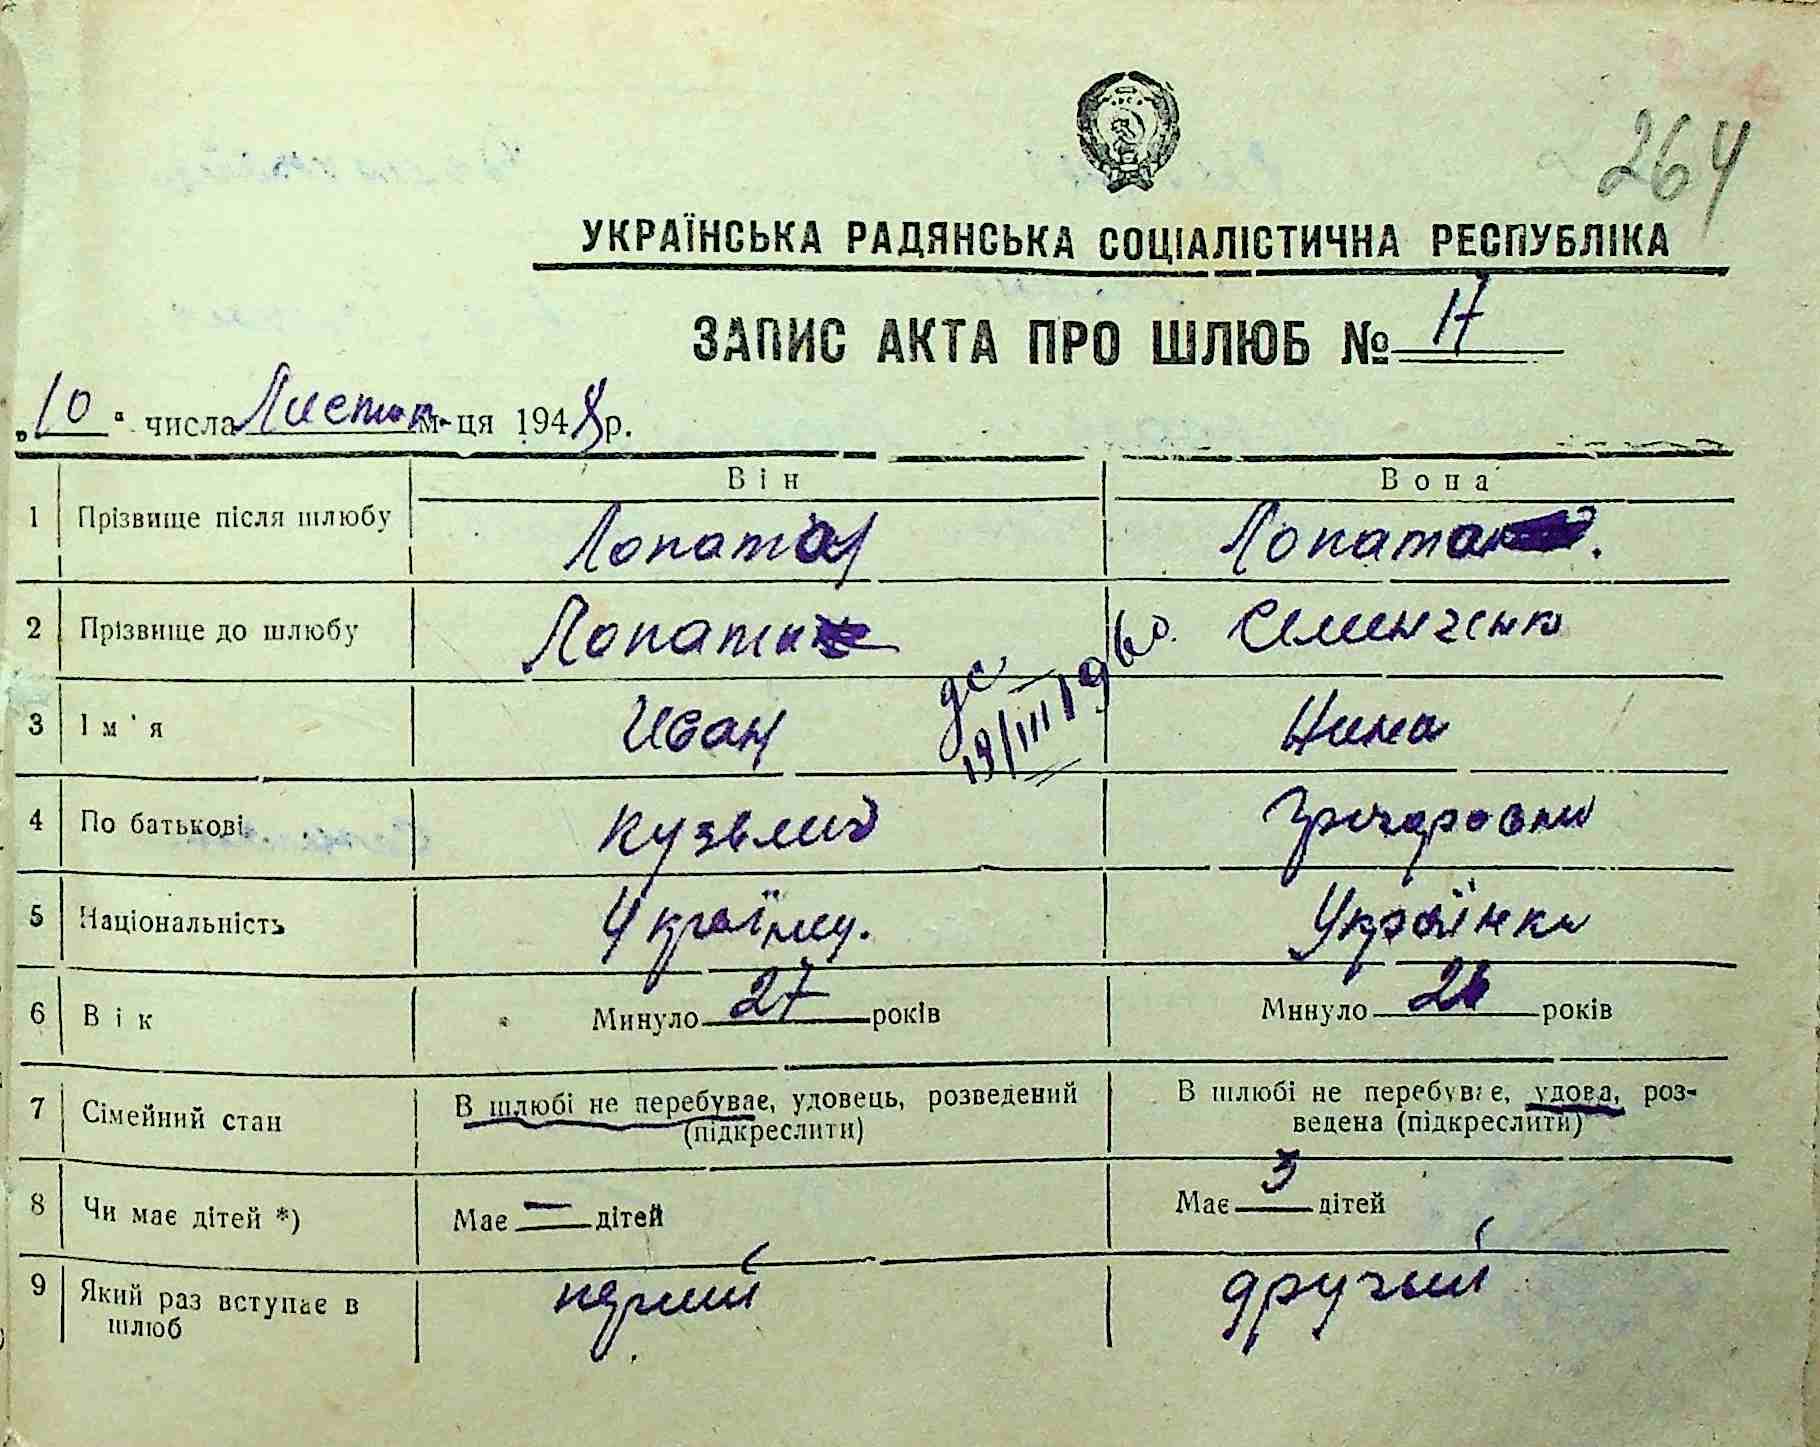 264
УКРАЇНСЬКА РАДЯНСЬКА СОЦІАЛІСТИЧНА РЕСПУБЛІКА
ЗАПИС АКТА ПРО ШЛЮБ № 17
„10“ числа Листоп. м-ця 1948 р.
Він Вона
1 Прізвище після шлюбу Лопата Лопата
2 Прізвище до шлюбу Лопата Семенченко
19/III 1960.
3 Ім'я Иван Нина
4 По батькові Кузьмич
5 Національність Україн Українка
6 Вік Минуло 27 років Минуло 26 років
7 Сімейний стан В шлюбі не перебуває, удовець, розведений (підкреслити) В шлюбі не перебуває, удова, роз-
ведена (підкреслити)
8 Чи має дітей *) Має — дітей Має 3 дітей
9 Який раз вступає в шлюб перший другий